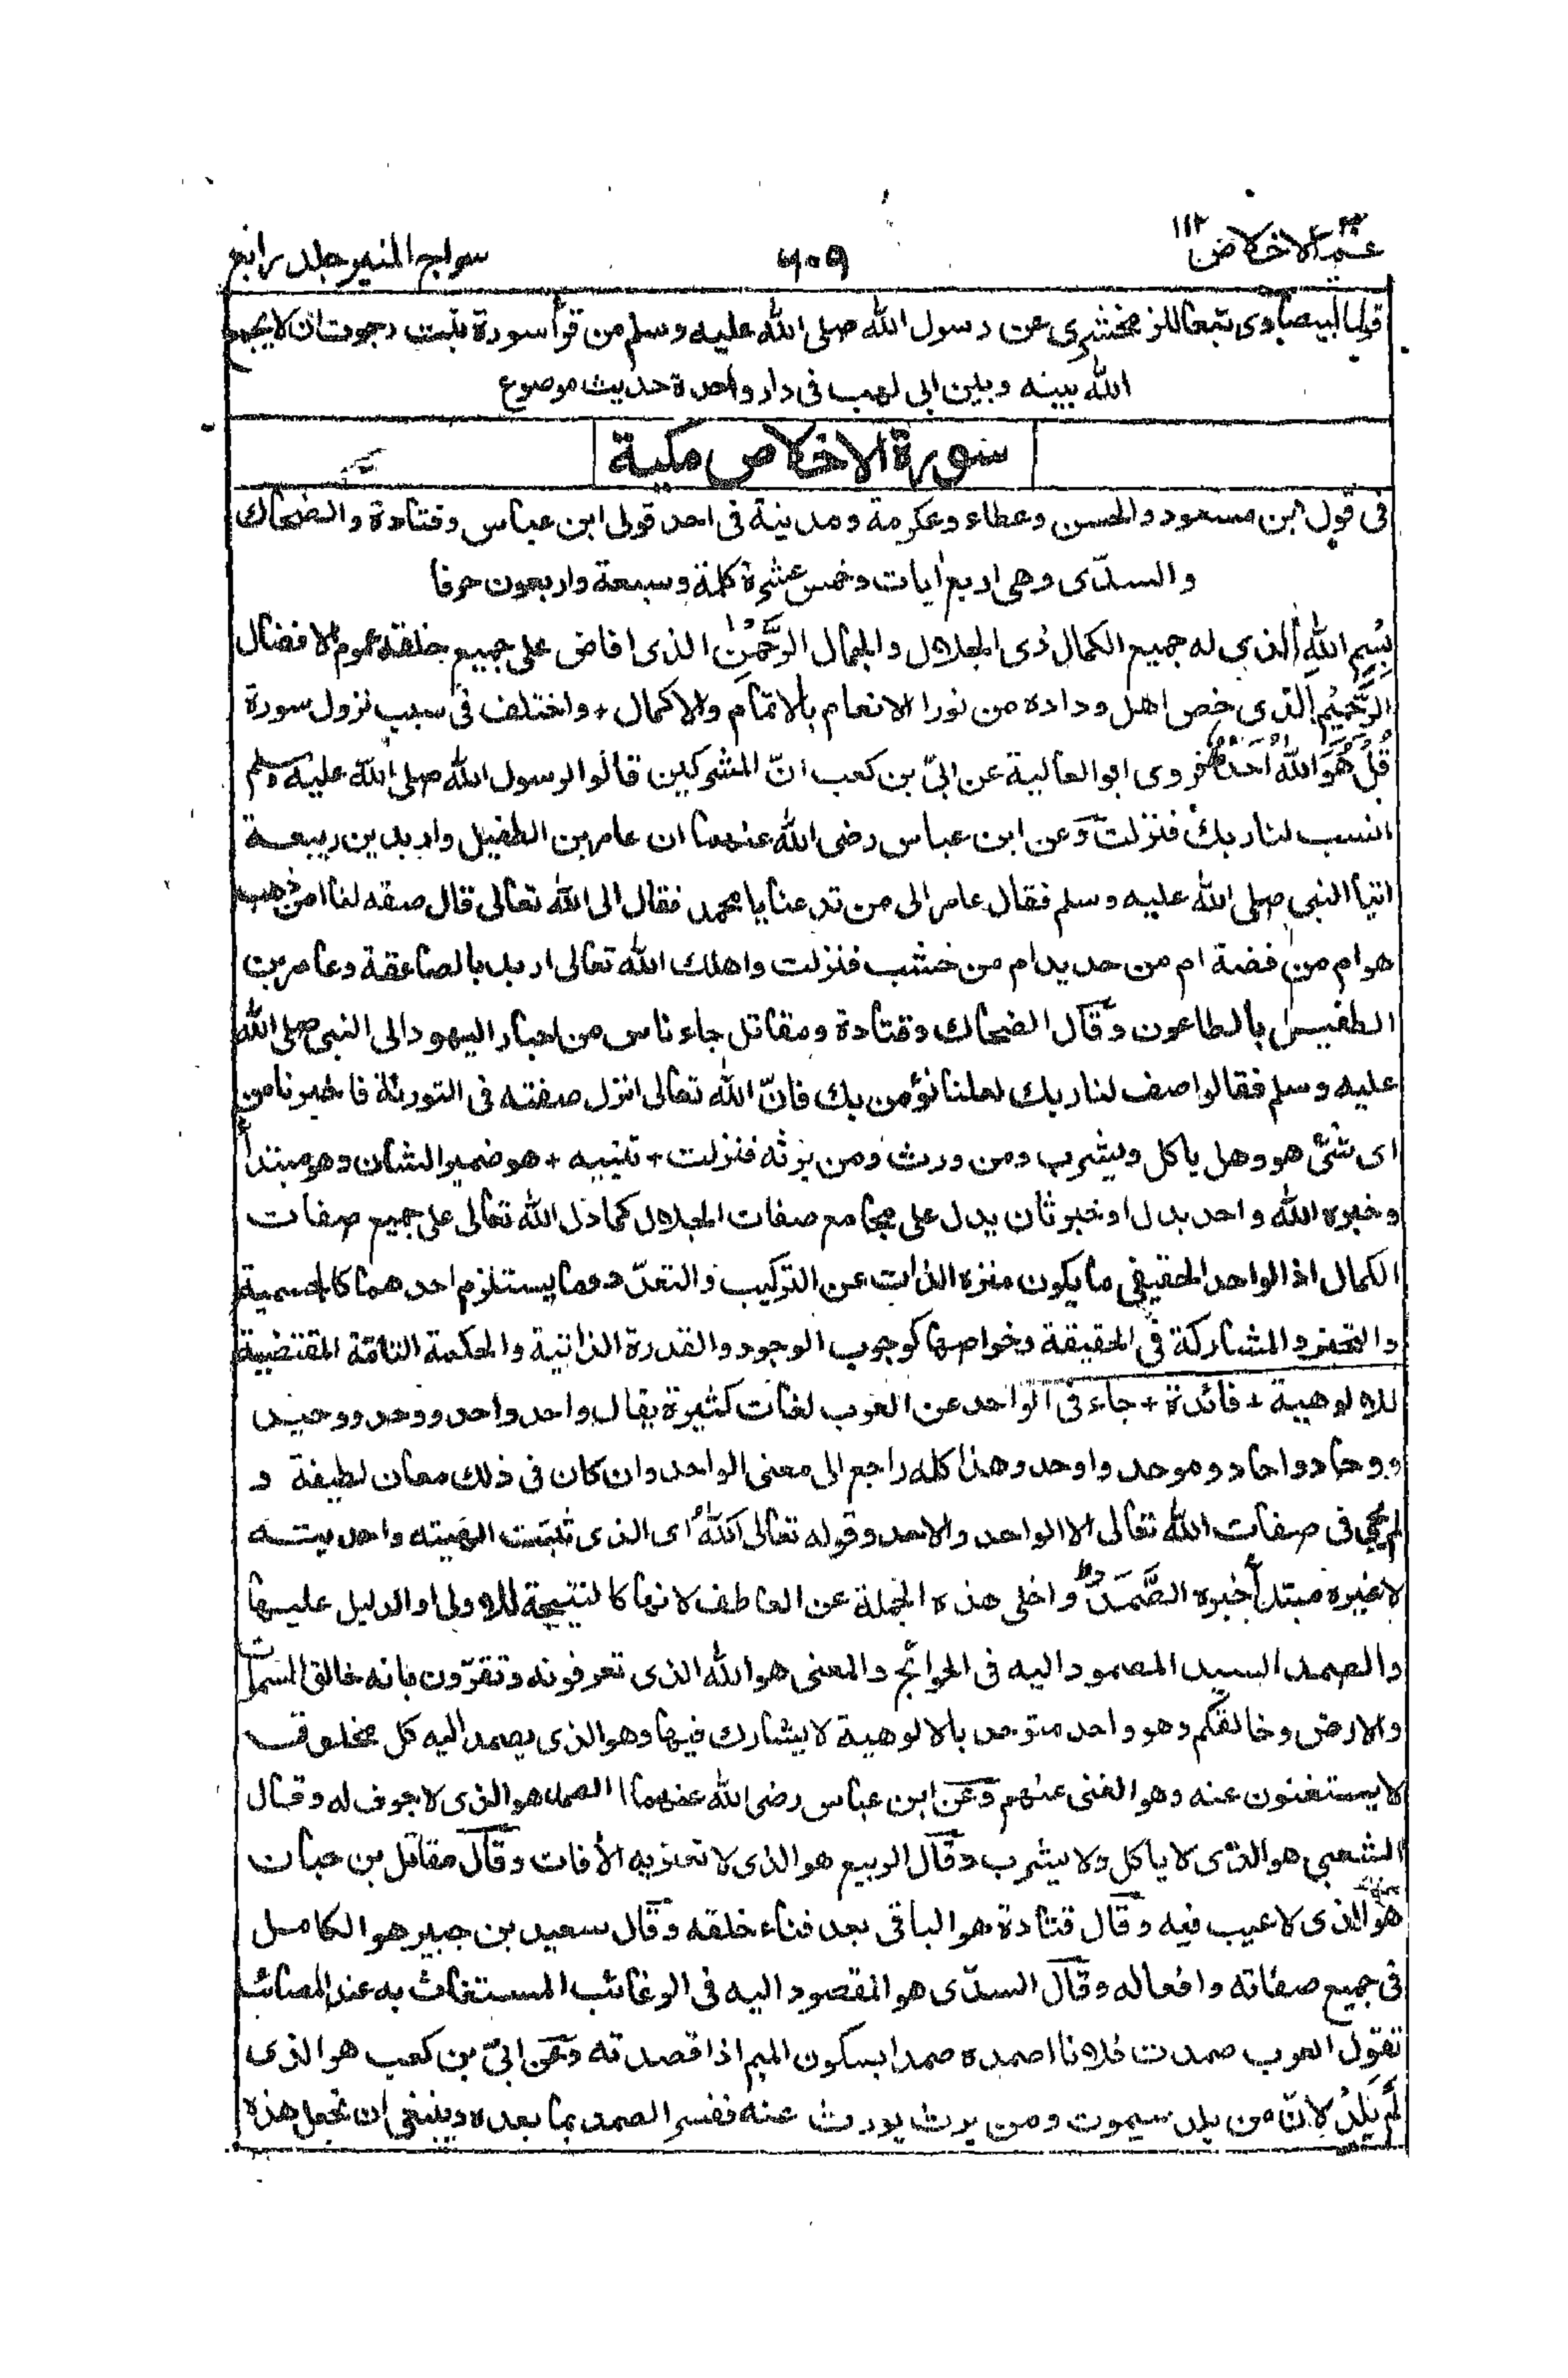 عم الاخلاص ١١٢
٦٠٩
سراج المنير جلد رابع
قول البيضاوى تبعا للزمخشرى عن رسول الله صلى الله عليه وسلم من قرأ سورة تبت رجوت ان لا يجمع
الله بينه وبين ابى لهب فى دار واحدة حديث موضوع
سورة الاخلاص مكية
فى قول ابن مسعود والحسن وعطاء وعكرمة ومدنية فى احد قولى ابن عباس وقتادة والضحاك
والسدّى وهى اربع اٰيات وخمس عشرة كلمة وسبعة واربعون حرفا
بِسْمِ اللهِ الذى له جميع الكمال ذى الجلال والجمال الرَّحْمٰنِ الذى افاض على جميع خلقه عموم الافضال
الرَّحِيْمِ الذى خص اهل وداده من نور الانعام بالاتمام والاكمال + واختلف فى سبب نزول سورة
قُلْ هُوَ اللهُ اَحَدٌ فروى ابو العالية عن ابىّ بن كعب انّ المشركين قالوا لرسول الله صلى الله عليه وسلم
انسب لنا ربك فنزلت وعن ابن عباس رضى الله عنهما ان عامر بن الطفيل واربد بن ربيعة
اتيا النبى صلى الله عليه وسلم فقال عامر الى من تدعنا يا محمد فقال الى الله تعالى قال صفه لنا امن ذهب
هو ام من فضة ام من حديد ام من خشب فنزلت واهلك الله تعالى اربد بالصاعقة وعامر بن
الطفيل بالطاعون وقال الضحاك وقتادة ومقاتل جاء ناس من احبار اليهود الى النبى صلى الله
عليه وسلم فقالوا صف لنا ربك لعلنا نؤمن بك فانّ الله تعالى انزل صفته فى التورٰىة فاخبرنا من
اى شئ هو وهل ياكل ويشرب ومن ورث ومن يرثه فنزلت + تنبيه + هو ضمير الشان وهو مبتدأ
وخبره الله واحد بدل او خبر ثان يدل على مجامع صفات الجلال كما دل الله تعالى على جميع صفات
الكمال اذ الواحد الحقيقى ما يكون منزه الذات عن التركيب والتعدّد وما يستلزم احدهما كالجسمية
والتحيز والمشاركة فى الحقيقة وخواصها كوجوب الوجود والقدرة الذاتية والحكمة التامّة المقتضية
للالوهية + فائدة + جاء فى الواحد عن العرب لغات كثيرة يقال واحد واحد ووحد ووحيد
ووحاد واحاد وموحد واوحد وهذا كله راجع الى معنى الواحد وان كان فى ذلك معان لطيفة و
لم يجئ فى صفات الله تعالى الا الواحد والاحد وقوله تعالى اَللهُ اى الذى ثبتت الهيته واحديته
لا غيره مبتدأ خبره الصَّمَدُ واخلى هذه الجملة عن العاطف لانها كالنتيجة للاولى او الدليل عليها
والصمد السيد المصمود اليه فى الحوائج والمعنى هو الله الذى تعرفونه وتقرّون بانه خالق السمٰوات
والارض وخالقكم وهو واحد متوحد بالالوهية لا يشارك فيها وهو الذى يصمد اليه كل مخلوق
لا يستغنون عنه وهو الغنى عنهم وعن ابن عباس رضى الله عنهما الصمد هو الذى لا جوف له وقال
الشعبى هو الذى لا ياكل ولا يشرب وقال الربيع هو الذى لا تعتريه الاٰفات وقال مقاتل بن حبان
هو الذى لا عيب فيه وقال قتادة هو الباقى بعد فناء خلقه وقال سعيد بن جبير هو الكامل
فى جميع صفاته وافعاله وقال السدّى هو المقصود اليه فى الرغائب المستغاث به عند المصائب
تقول العرب صمدت فلانا اصمده صمدا بسكون الميم اذا قصدته وعن ابىّ بن كعب هو الذى
لَمْ يَلِدْ لانّ من يلد سيموت ومن يرث يورث عنه ففسر الصمد بما بعده وينبغى ان تجعل هذه